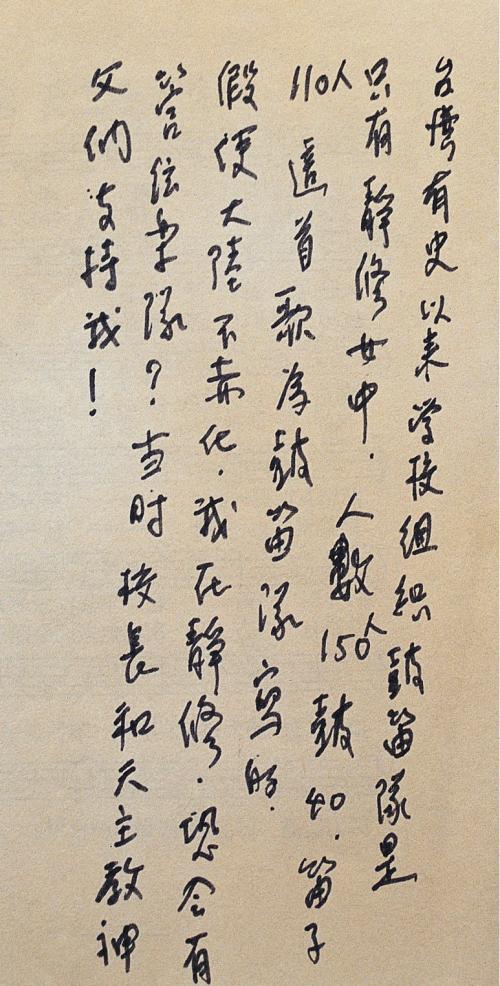 台灣有史以來学校組织鼓笛隊是
只有静修女中．人數150人鼓40．笛子
110人 這首歌為鼓笛隊寫的．
假使大陸不赤化．我在静修．恐会有
管弦乐隊？当时校長和天主教神
父们支持我！